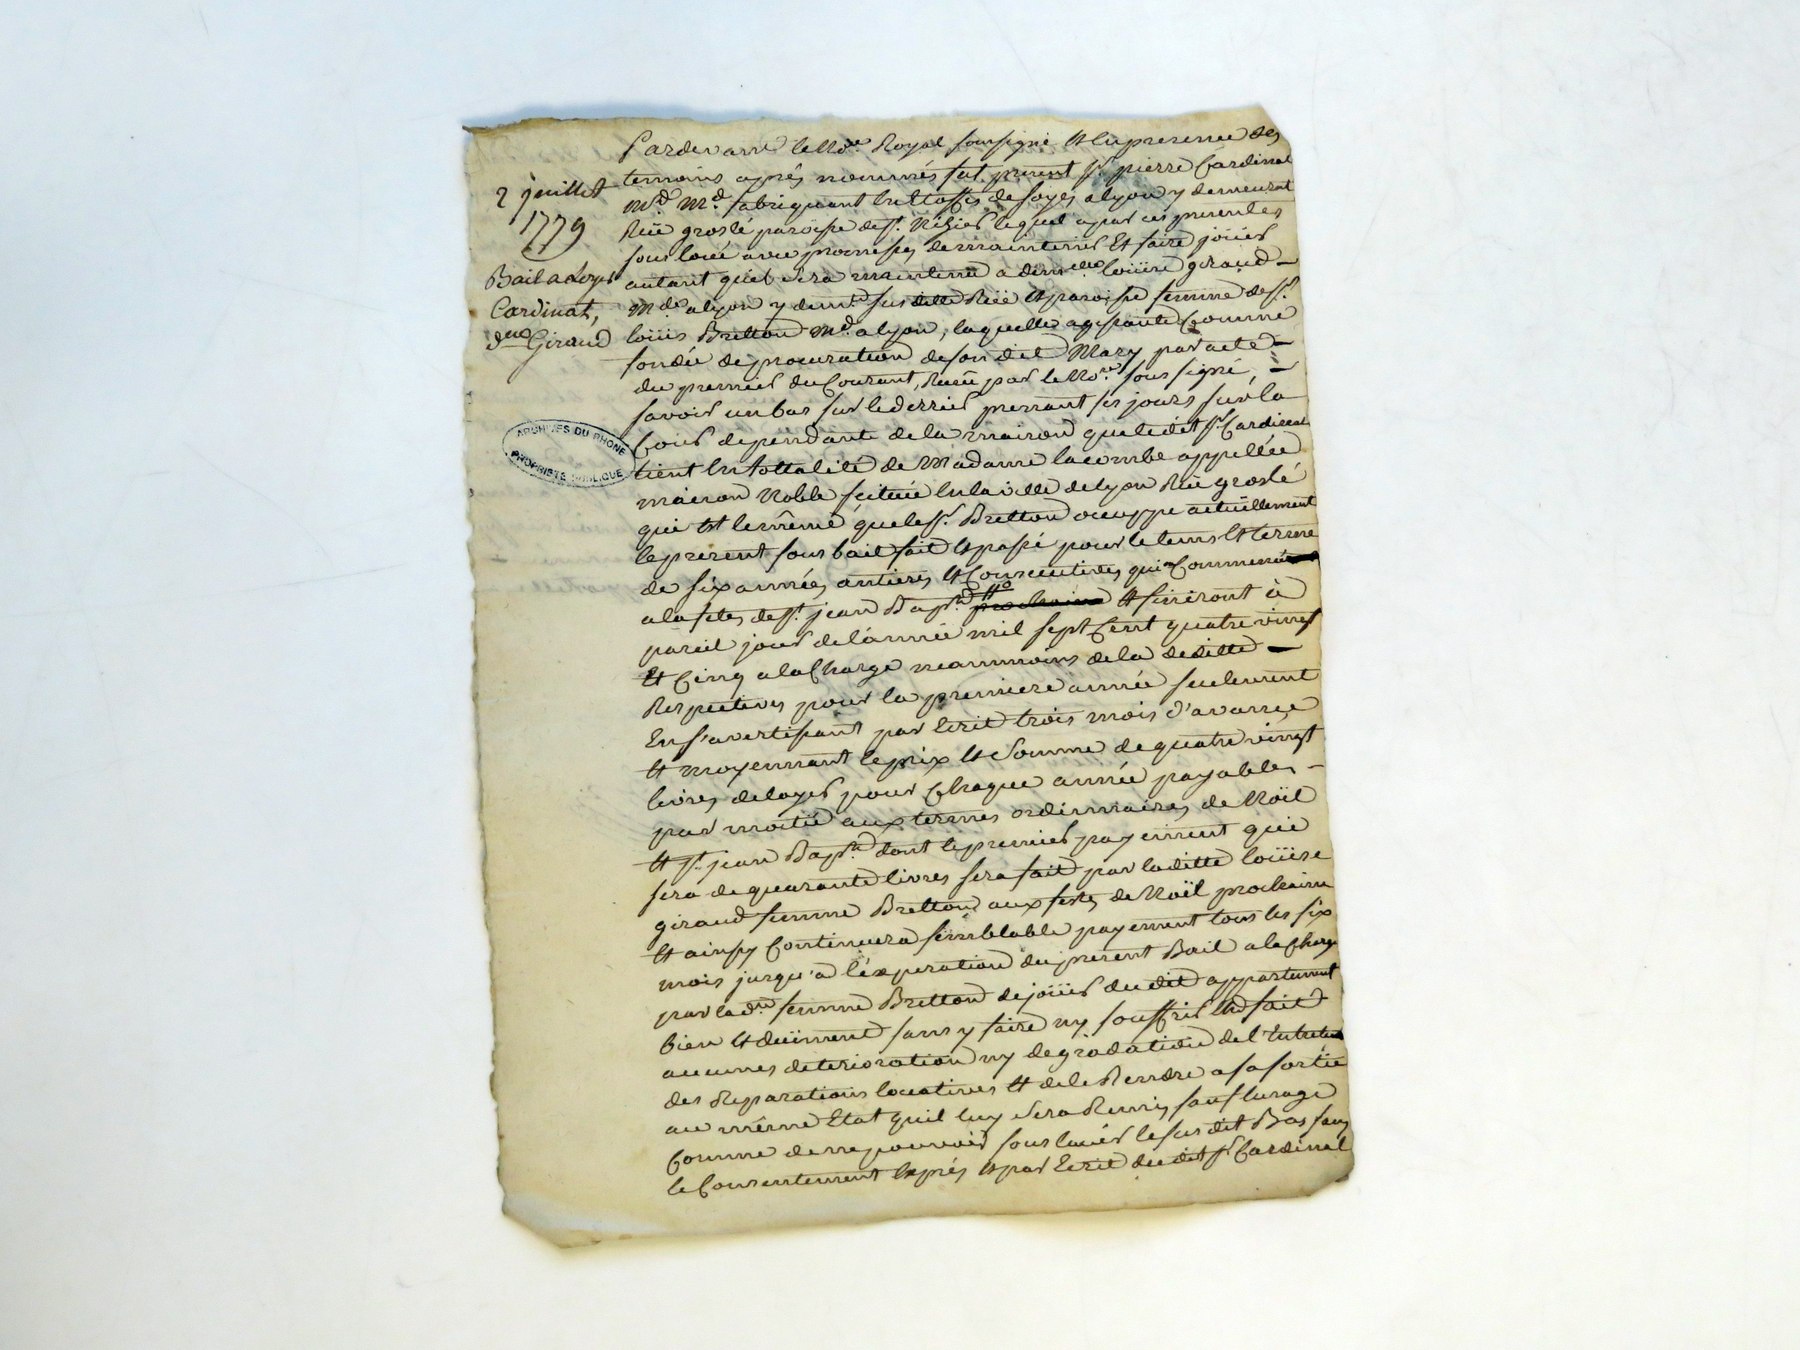 2 juillet
1779
Bail a Loyer
Cardinal,
dlle Giraud
ARCHIVES DU RHONE
PROPRIETE PUBLIQUE
Pardevant le Nore Royal soussigné Et En presence des
temoins après nommés fut present sr. pierre Cardinal
Md. fabriquant En Etoffes de soyes a lyon y demeurant
Rüe grolé paroisse de st. Nizier lequel a par ces presentes
sous loué avec promesses de maintenir Et faire joüir
autant quil sera maintenu a demlle loüise giraud —
Mde. a lyon y demte. sus ditte Rüe Et paroisse femme de sr.
loüis Bretton Md. a lyon, laquelle agissante Comme
fondée de procuration de son dit Mary par acte —
du premier du Courant, Recu par le Nore sous signé, —
savoir un bas sur le derrier prenant ses jours sur la
Cour dependante de la maison que le dit sr. Cardinal
tient En tottalité de Madame lacombe appellée
maison Noble scituée En la ville de lyon Rüe grolé
qui Est le même que le sr. Bretton occuppe actüellement
le present sous bail fait Et passé pour le tems Et terme
de six années antieres Et Consecutives qui Commencé
a la fetes de st. jean Bapte. Et finiront à
pareil jour de l'année mil sept Cent quatre vingt
Et Cinq a la Charge neanmoins de la deditte —
Respectives pour la premiere année seulement
En s'avertissant par Ecrit trois mois d'avance
Et moyennant le prix Et Somme de quatre vingt
livres de loyer pour Chaque année payables —
par moitié aux termes ordinnaires de Noël
Et st. jean Bapte. dont le premier payement qui
sera de quarante livres sera fait par la ditte loüise
giraud femme Bretton aux fetes de Noël prochaine
Et ainsy Continuera semblable payement tous les six
mois jusqu'a l'éxpiration du present Bail a la Charge
par la dte femme Bretton de joüir du dit appartement
bien Et düement sans y faire ny souffrir Etre fait
aucunes deterioration ny degradation de l'Entretien
des Reparations locatives Et de le Rendre a sa sortie
au même Etat quil luy Sera Remis sauf lusage
Comme de ne pouvoir sous loüer le sus dit Bas sans
le Consentement Exprès Et par Ecrit du dit sr Cardinal